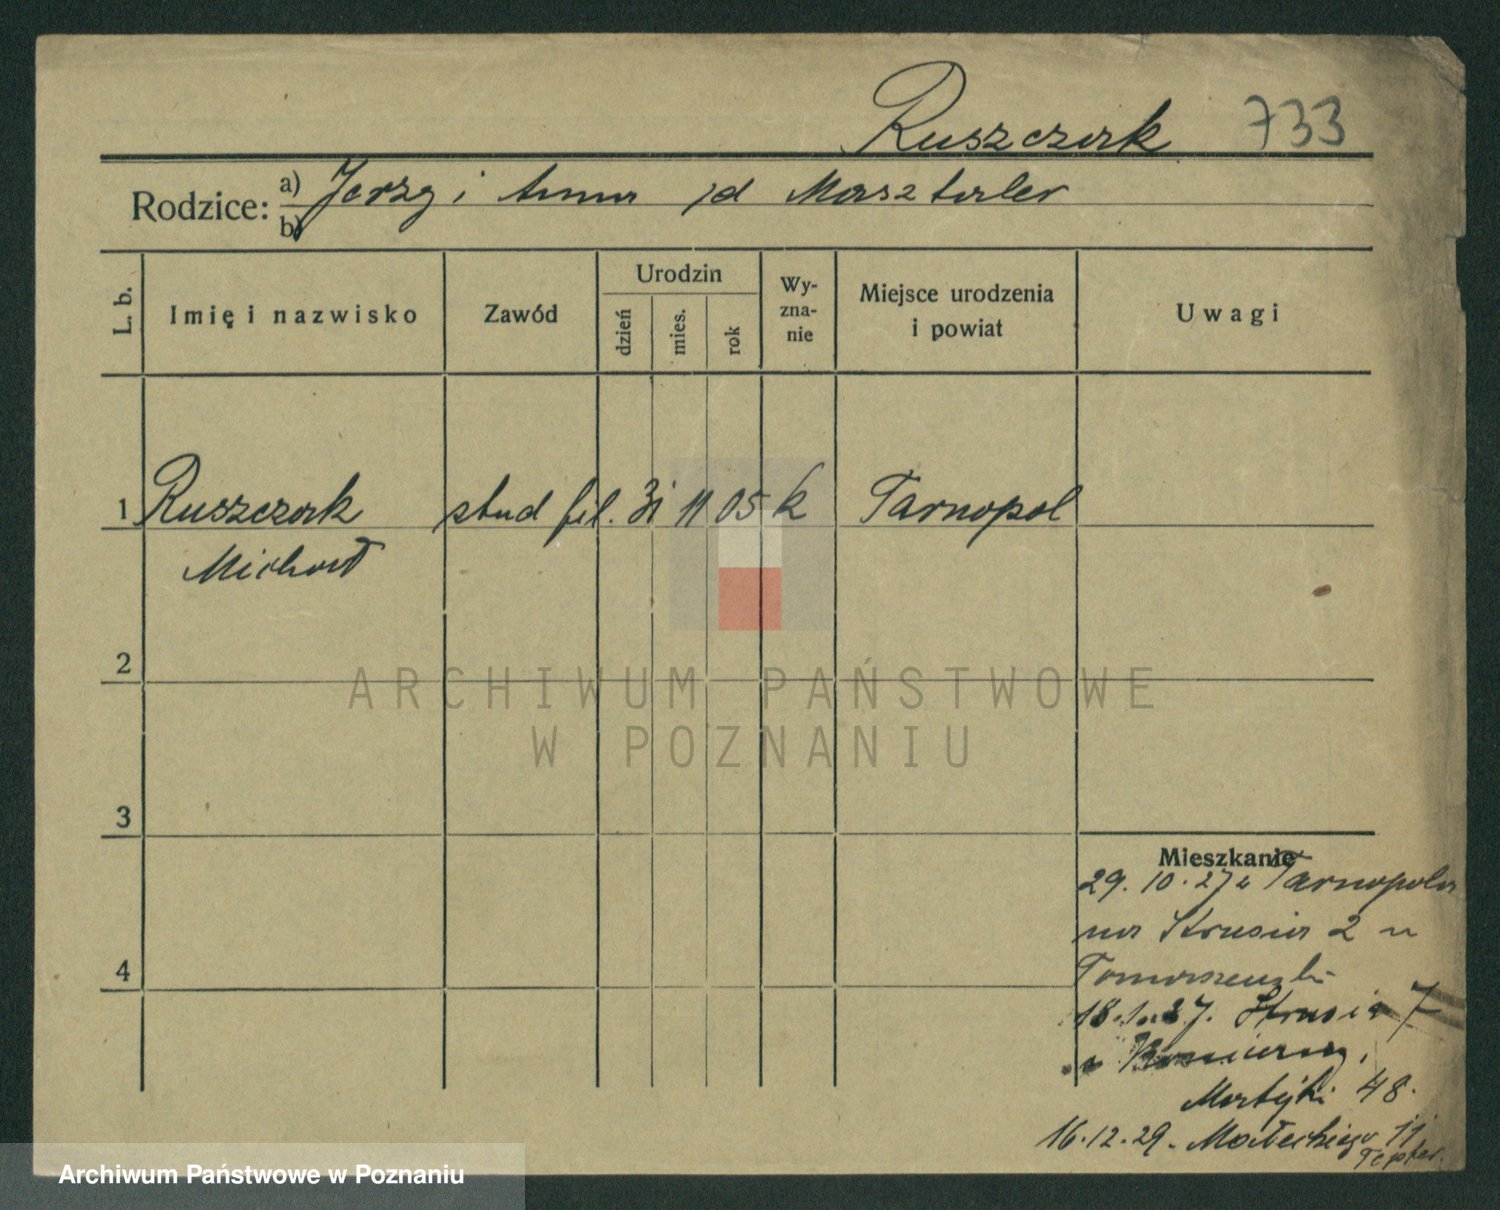 Ruszczak 733
Rodzice: a) Jerzy i Anna zd Masztaler
b)
L. b.
Imię i nazwisko
Zawód
Urodzin
dzień
mies.
rok
Wy-
zna-
nie
Miejsce urodzenia
i powiat
Uwagi
1 Ruszczak stud fil. 31 11 05 k Tarnopol
Michał
2
3
4
Mieszkanie
29. 10. 27 z Tarnopola
na Strusia 2 u
18. 1. 27. Strusia 7
Matejki 48.
16.12.29. Małeckiego 11
ARCHIWUM PAŃSTWOWE
W POZNANIU
Archiwum Państwowe w Poznaniu